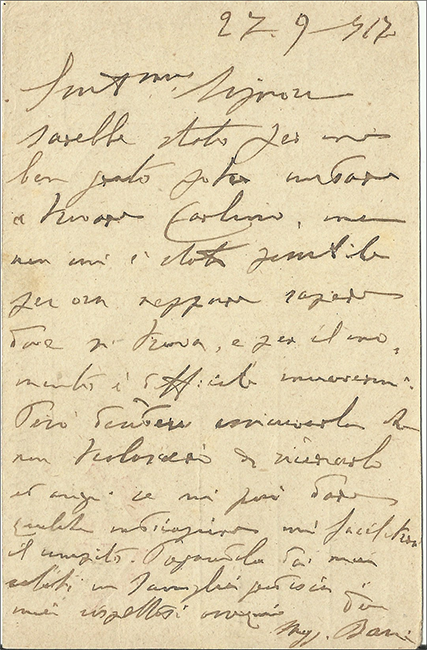 27-9-917
Signore
sarebbe stato per me
ben grato poter andare
a trovare Carlino, ma
non mi è stato possibile
per ora neppure sapere
dove si trova, e per il mo-
mento è difficile muovermi.
Però desidero assicurarla che
non tralascerò di ricercarlo
ed anzi se mi può dare
qualche indicazione mi faciliterà
il compito. Porgendo dai miei
saluti in famiglia
miei rispettosi ossequi
Magg.